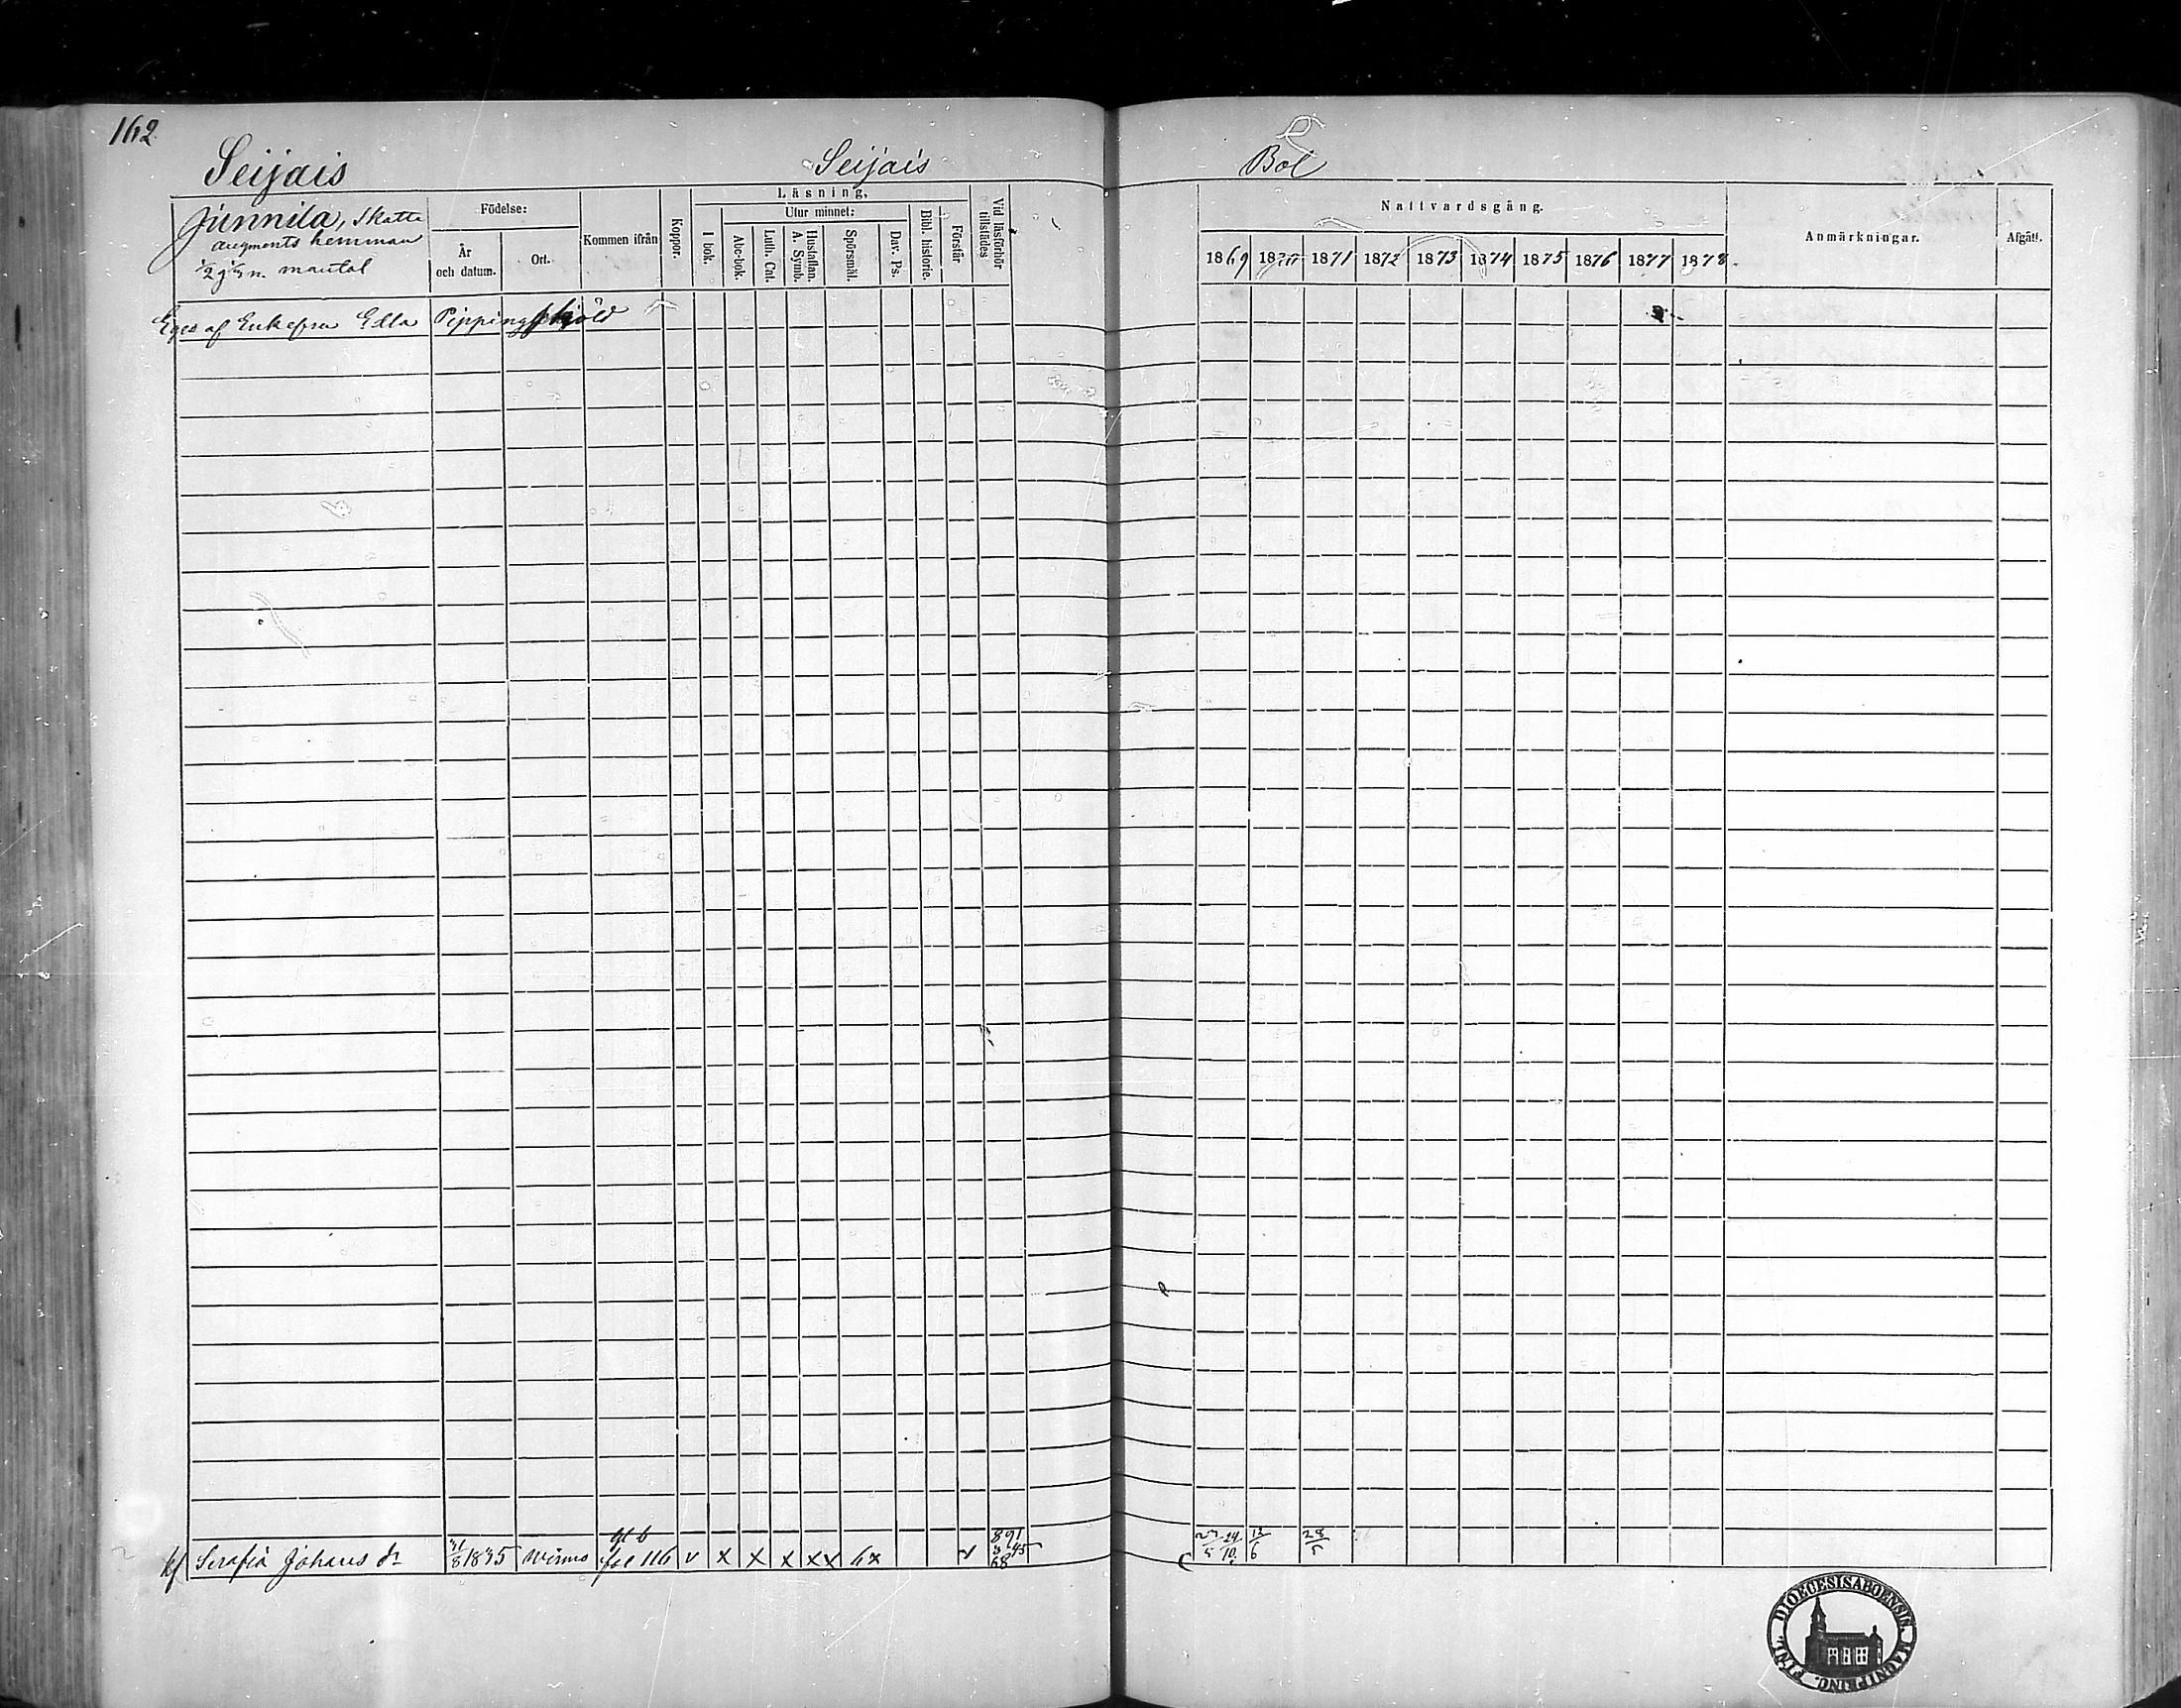 162
Seijais
Seijais
Bol
Junnila, Skatte
augments hemman
mantal
Födelse:
År
och datum.
Ort.
Kommen ifrån
Koppor.
Läsning.
I bok.
Utur minnet:
Abc-bok.
Luth. Cat.
Hustaflan.
A. Symb.
Spörsmål.
Dav. Ps.
Bibl. historie.
Förstår
Vid läsförhör
tillstädes
Nattvardsgång.
1869 1870 1871 1872 1873 1874 1875 1876 1877 1878
Anmärkningar.
Afgått.
Eges af Enkefru Ella Pippingsköld
Serafia Johans dr 31/8 1835 Wirmo fol 116 v x x x xx 6x
68
12/6 28/5
DIOECESIS ABOENSIS MAGNI PRINC. FINL.